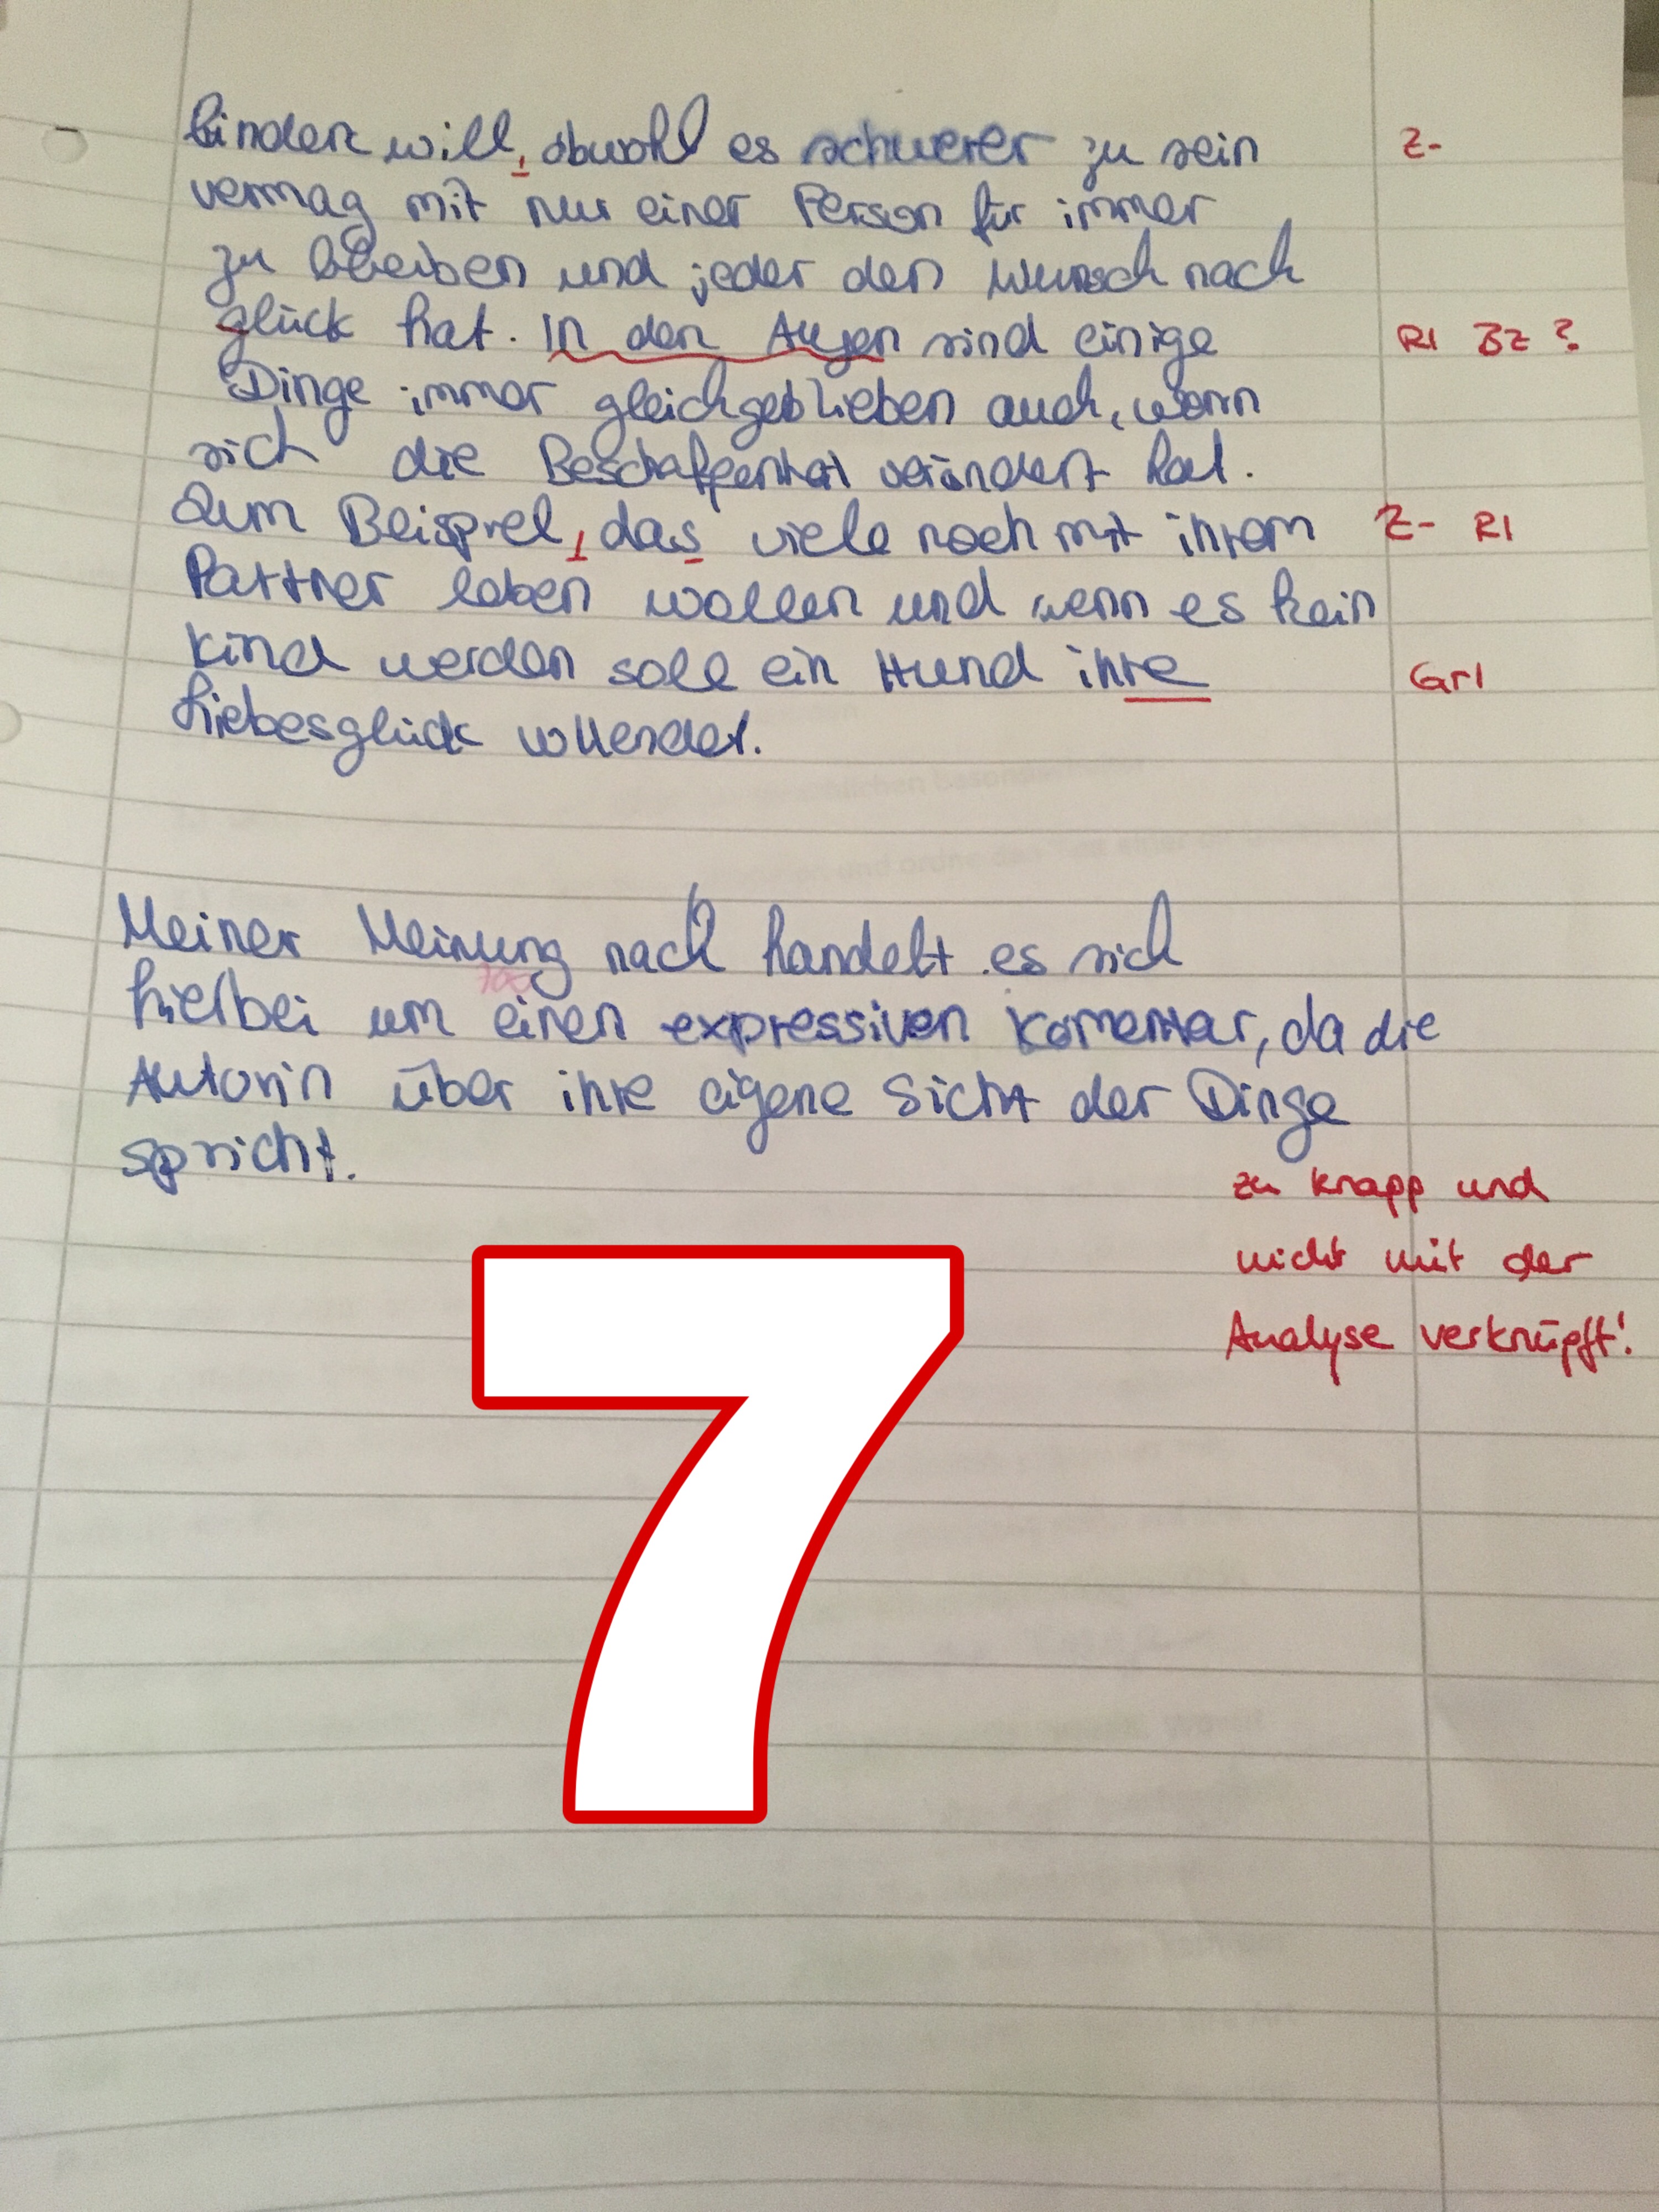 binden will, obwohl es schwerer zu sein Z-
vermag mit nur einer Person für immer
zu bleiben und jeder den Wunsch nach
glück hat. In den Augen sind einige R1 Bz ?
Dinge immer gleichgeblieben auch, wenn
sich die Beschaffenheit verändert hat.
Zum Beispiel, das viele noch mit ihrem Z- R1
Partner leben wollen und wenn es kein
Kind werden soll ein Hund ihre Gr1
Liebesglück vollendet.
Meiner Meinung nach handelt es sich
hierbei um einen expressiven Komentar, da die
Autorin über ihre eigene Sicht der Dinge
spricht.
zu knapp und
nicht mit der
Analyse verknüpft!
7